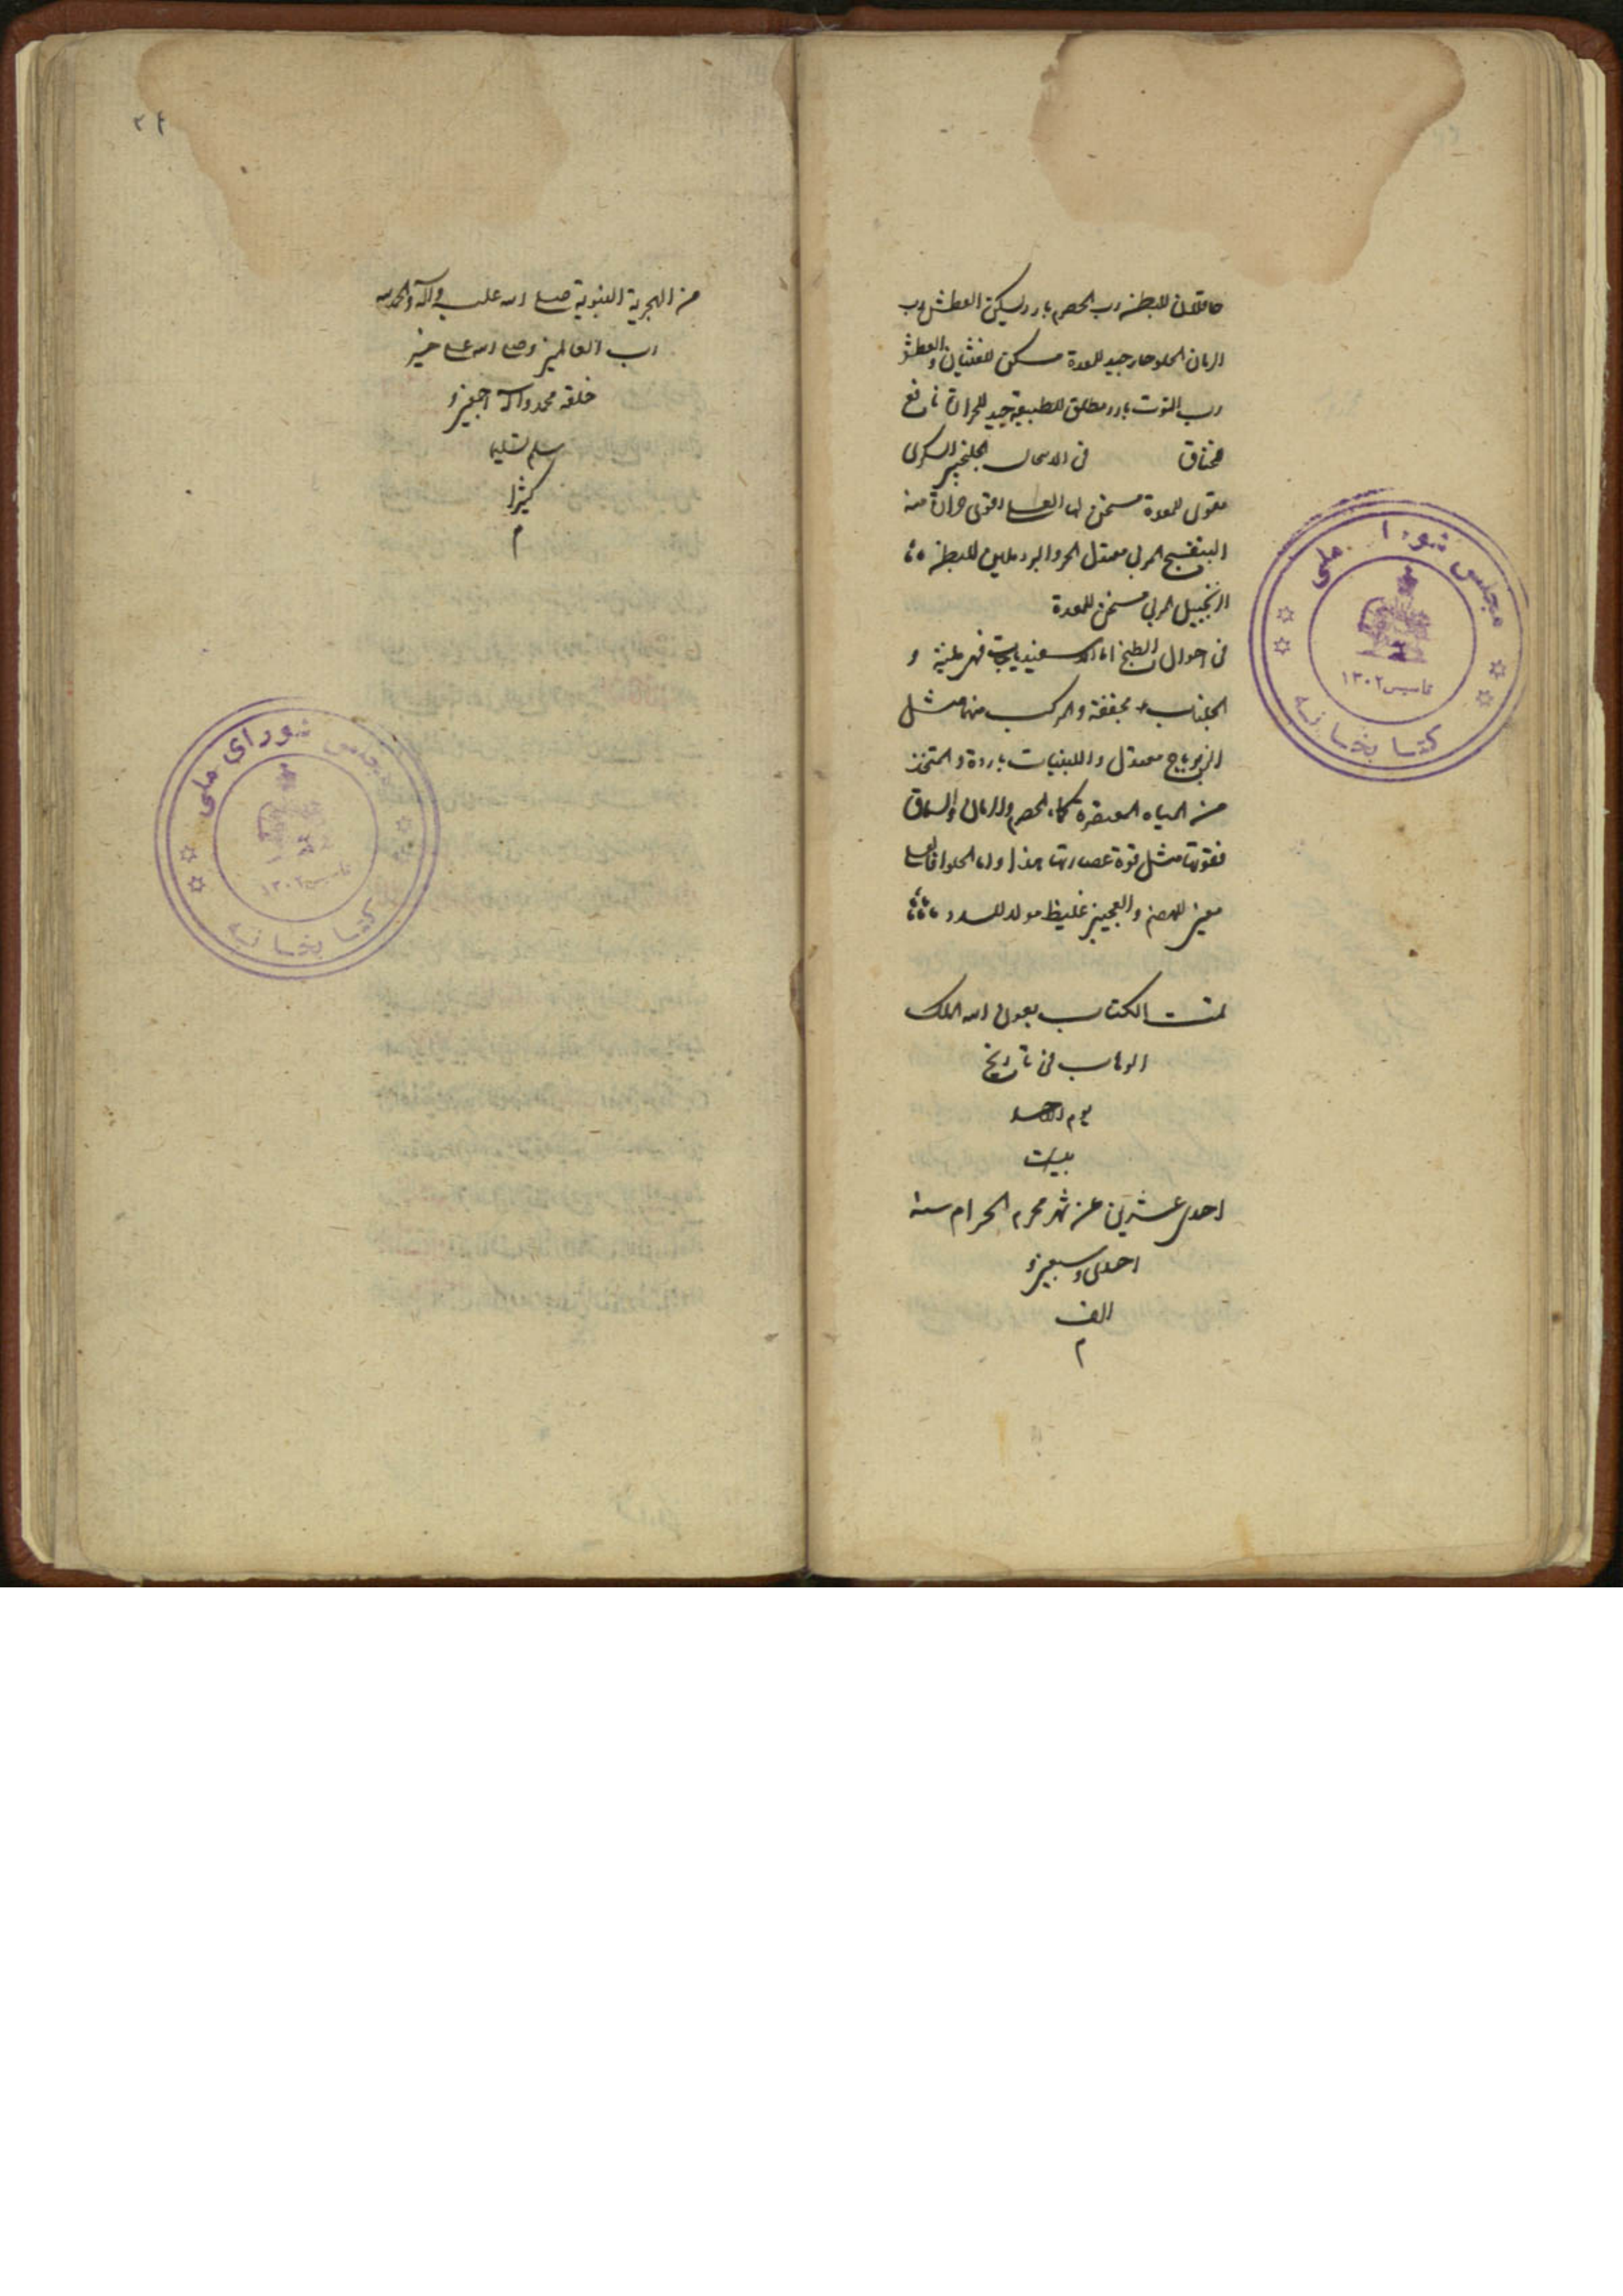 عاقلان للبطن رب الحصرم بارد يسكن العطش رب
الرمان الحلو حار جيد للمعدة مسكن للغثيان والعطش
رب التوت بارد مطلق للطبيعة جيد للحرارة نافع
للخناق في الجلنجبين السكرى
مقوى للمعدة مسخن لها العسلى اقوى حرارة منه
البنفسج المربى معتدل الحر والبرد ملين للبطن
الزنجبيل المربى مسخن للمعدة
في احوال الطبخ اما الاسفيدباجات فمرطبة و
مجففة والمركب منها مثل
الزيرباج معتدل واللبنيات باردة والمتخذ
من المياه المعتصرة كماء الحصرم والرمان والسماق
فقوتها مثل قوة عصارتها هذا واما الحلوا فالعسلى
معين للهضم والعجين غليظ مولد للسدد
تمت الكتاب بعون الله الملك
الوهاب في تاريخ
يوم الاحد
بيست
احدى عشرين من شهر محرم الحرام سنه
احدى وسبعين و
الف
م
من الهجرية النبوية صلى الله عليه وآله والحمد لله
رب العالمين وصلى الله على خير
خلقه محمد وآله اجمعين و
سلم تسليما
كثيرا
م
مجلس شورا ملى
تاسيس ١٣٠٢
كتابخانه
مجلس شوراى ملى
تاسيس ١٣٠٢
كتابخانه